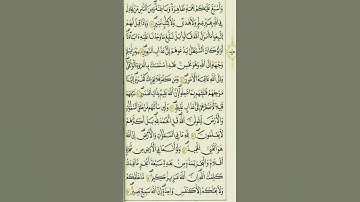 وَأَسْبَغَ عَلَيْكُمْ نِعَمَهُۥ ظَٰهِرَةً وَبَاطِنَةً وَمِنَ ٱلنَّاسِ مَن يُجَٰدِلُ
فِى ٱللَّهِ بِغَيْرِ عِلْمٍ وَلَا هُدًى وَلَا كِتَٰبٍ مُّنِيرٍ ۝ وَإِذَا قِيلَ لَهُمُ
ٱتَّبِعُوا۟ مَآ أَنزَلَ ٱللَّهُ قَالُوا۟ بَلْ نَتَّبِعُ مَا وَجَدْنَا عَلَيْهِ ءَابَآءَنَآ
أَوَلَوْ كَانَ ٱلشَّيْطَٰنُ يَدْعُوهُمْ إِلَىٰ عَذَابِ ٱلسَّعِيرِ ۝ وَمَن يُسْلِمْ
وَجْهَهُۥٓ إِلَى ٱللَّهِ وَهُوَ مُحْسِنٌ فَقَدِ ٱسْتَمْسَكَ بِٱلْعُرْوَةِ ٱلْوُثْقَىٰ
وَإِلَى ٱللَّهِ عَٰقِبَةُ ٱلْأُمُورِ ۝ وَمَن كَفَرَ فَلَا يَحْزُنكَ كُفْرُهُۥٓ إِلَيْنَا
مَرْجِعُهُمْ فَنُنَبِّئُهُم بِمَا عَمِلُوٓا۟ إِنَّ ٱللَّهَ عَلِيمٌۢ بِذَاتِ ٱلصُّدُورِ ۝ نُمَتِّعُهُمْ
قَلِيلًا ثُمَّ نَضْطَرُّهُمْ إِلَىٰ عَذَابٍ غَلِيظٍ ۝ وَلَئِن سَأَلْتَهُم مَّنْ خَلَقَ ٱلسَّمَٰوَٰتِ
وَٱلْأَرْضَ لَيَقُولُنَّ ٱللَّهُ قُلِ ٱلْحَمْدُ لِلَّهِ بَلْ أَكْثَرُهُمْ
لَا يَعْلَمُونَ ۝ لِلَّهِ مَا فِى ٱلسَّمَٰوَٰتِ وَٱلْأَرْضِ إِنَّ ٱللَّهَ
هُوَ ٱلْغَنِىُّ ٱلْحَمِيدُ ۝ وَلَوْ أَنَّمَا فِى ٱلْأَرْضِ مِن شَجَرَةٍ
أَقْلَٰمٌ وَٱلْبَحْرُ يَمُدُّهُۥ مِنۢ بَعْدِهِۦ سَبْعَةُ أَبْحُرٍ مَّا نَفِدَتْ
كَلِمَٰتُ ٱللَّهِ إِنَّ ٱللَّهَ عَزِيزٌ حَكِيمٌ ۝ مَّا خَلْقُكُمْ
وَلَا بَعْثُكُمْ إِلَّا كَنَفْسٍ وَٰحِدَةٍ إِنَّ ٱللَّهَ سَمِيعٌۢ بَصِيرٌ ۝